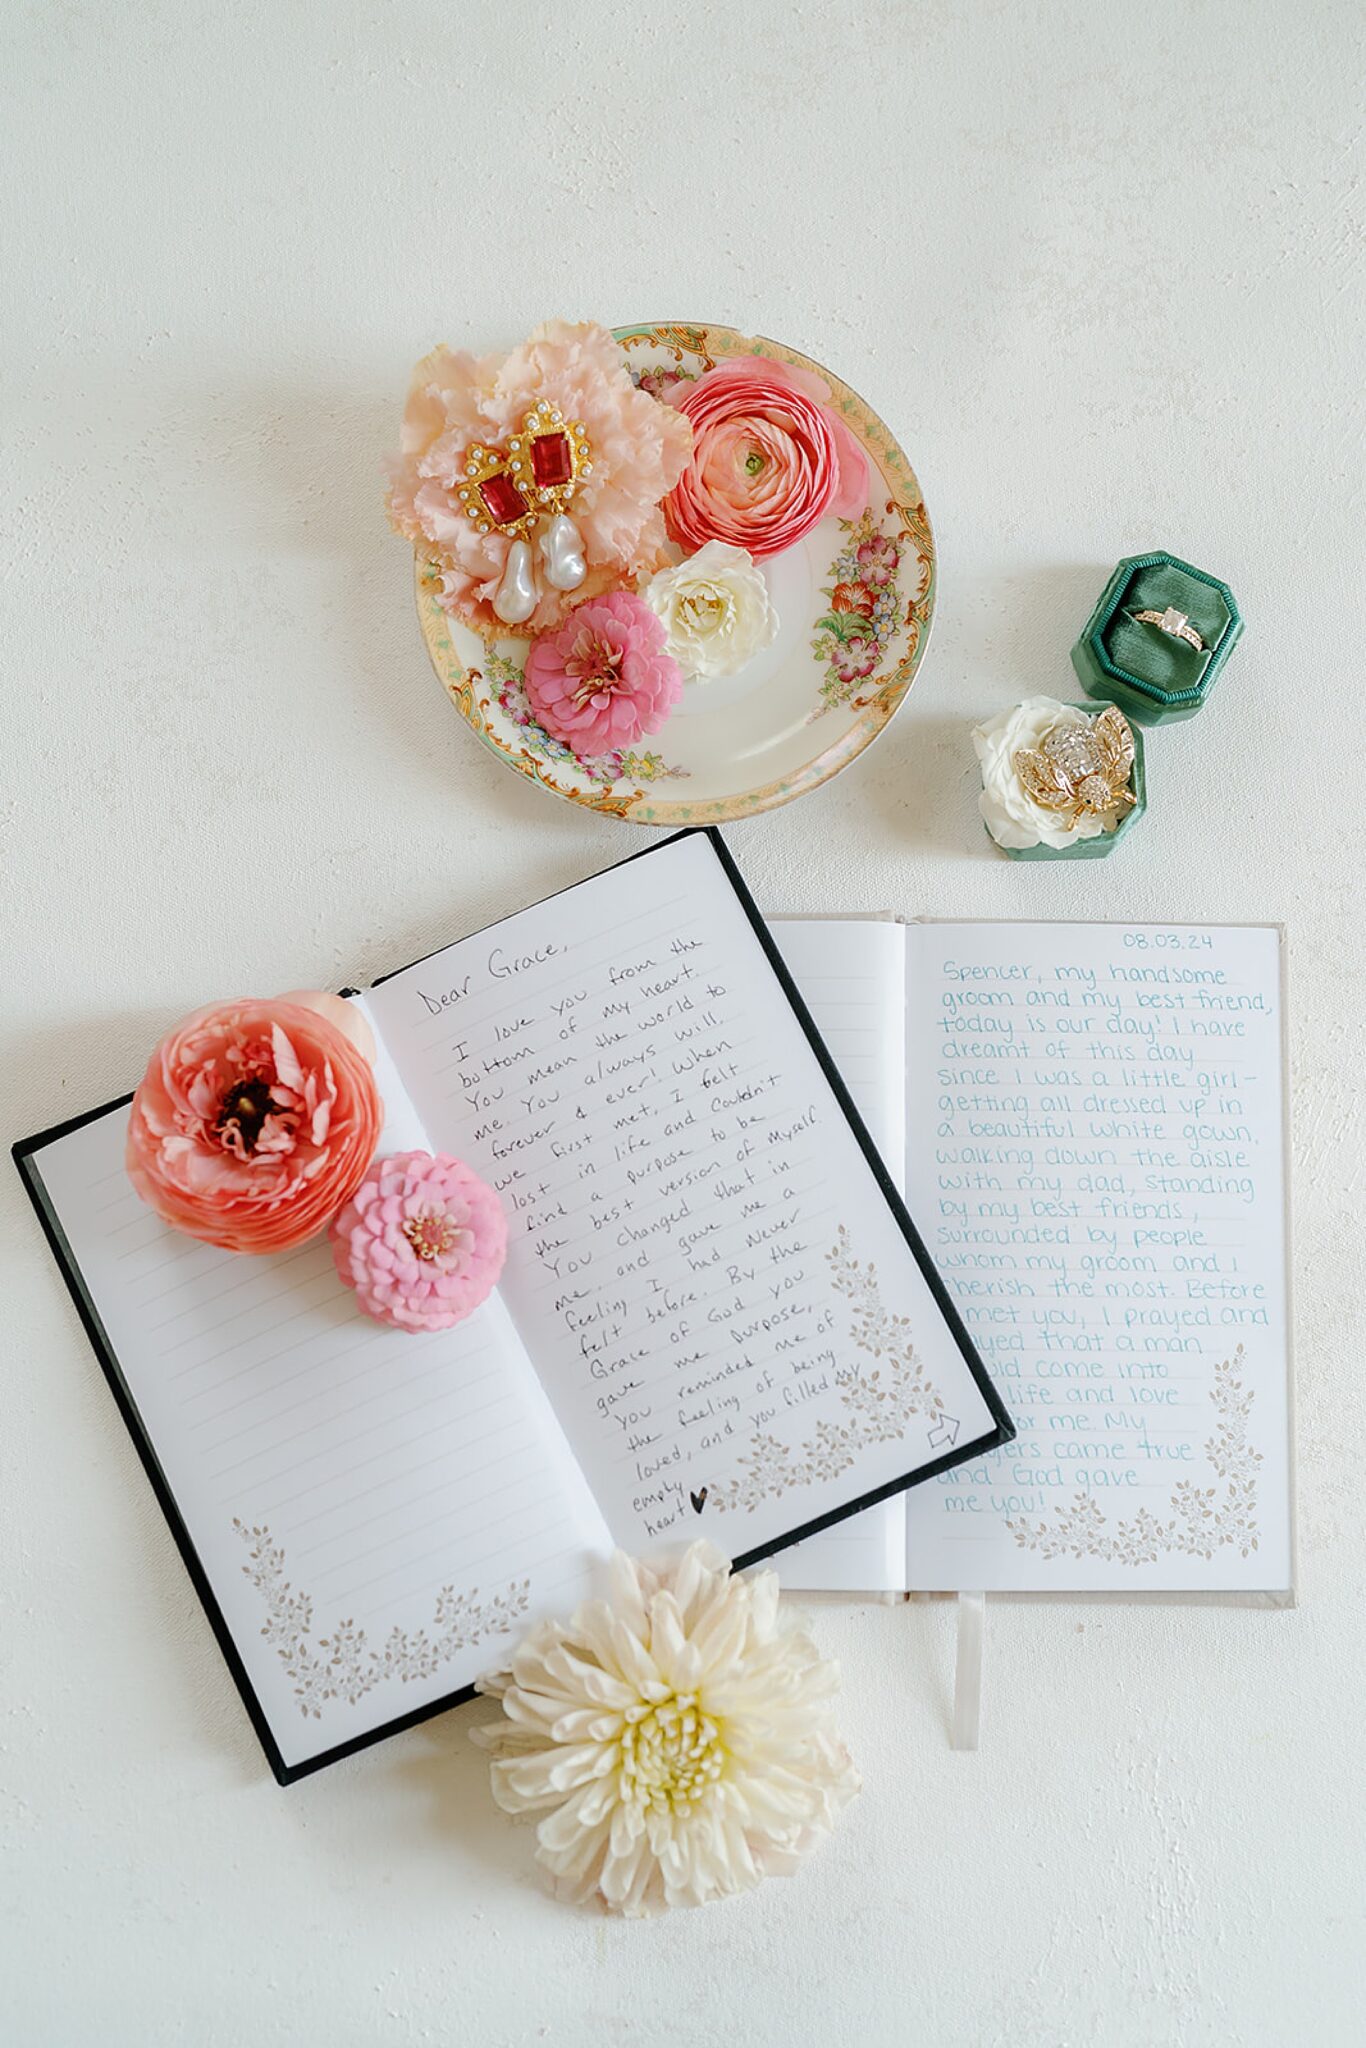 Dear Grace,
I love you from the
bottom of my heart.
You mean the world to
me. You always will.
forever & ever! When
we first met, I felt
lost in life and couldn't
find a purpose to be
the best version of myself.
You changed that in
me. and gave me a
feeling I had never
felt before. By the
Grace of God you
gave me purpose,
you reminded me of
the feeling of being
loved, and you filled my
empty
heart
08.03.24
Spencer, my handsome
groom and my best friend,
today is our day! I have
dreamt of this day
since I was a little girl-
getting all dressed up in
a beautiful white gown,
walking down the aisle
with my dad, standing
by my best friends,
surrounded by people
whom my groom and I
cherish the most. Before
met you, I prayed and
ayed that a man
uld come into
life and love
for me. My
ayers came true
and God gave
me you!